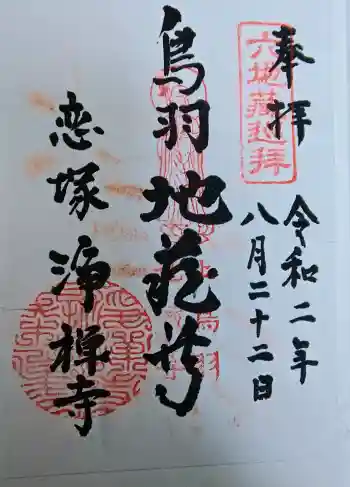 奉拝
六地蔵巡拝
令和二年
八月二十二日
鳥羽地蔵尊
恋塚浄禅寺